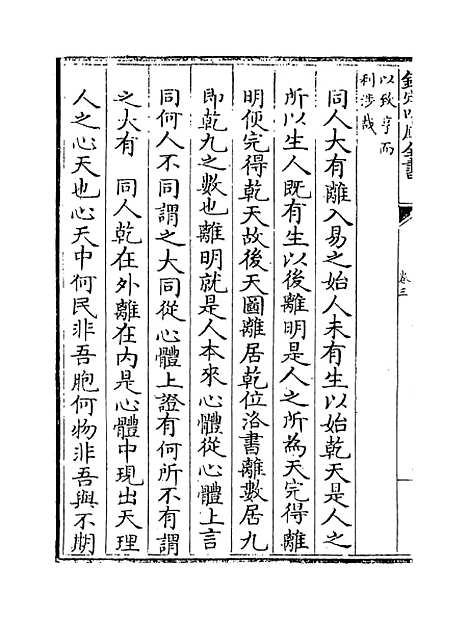 欽定四庫全書
卷三
以致亨而
利涉哉
同人大有離入易之始人未有生以始乾天是人之
所以生人既有生以後離明是人之所為天完得離
明便完得乾天故後天圖離居乾位洛書離數居九
即乾九之數也離明就是人本來心體從心體上言
同何人不同謂之大同從心體上證有何所不有謂
之大有　同人乾在外離在内是心體中現出天理
人之心天也心天中何民非吾胞何物非吾與不期